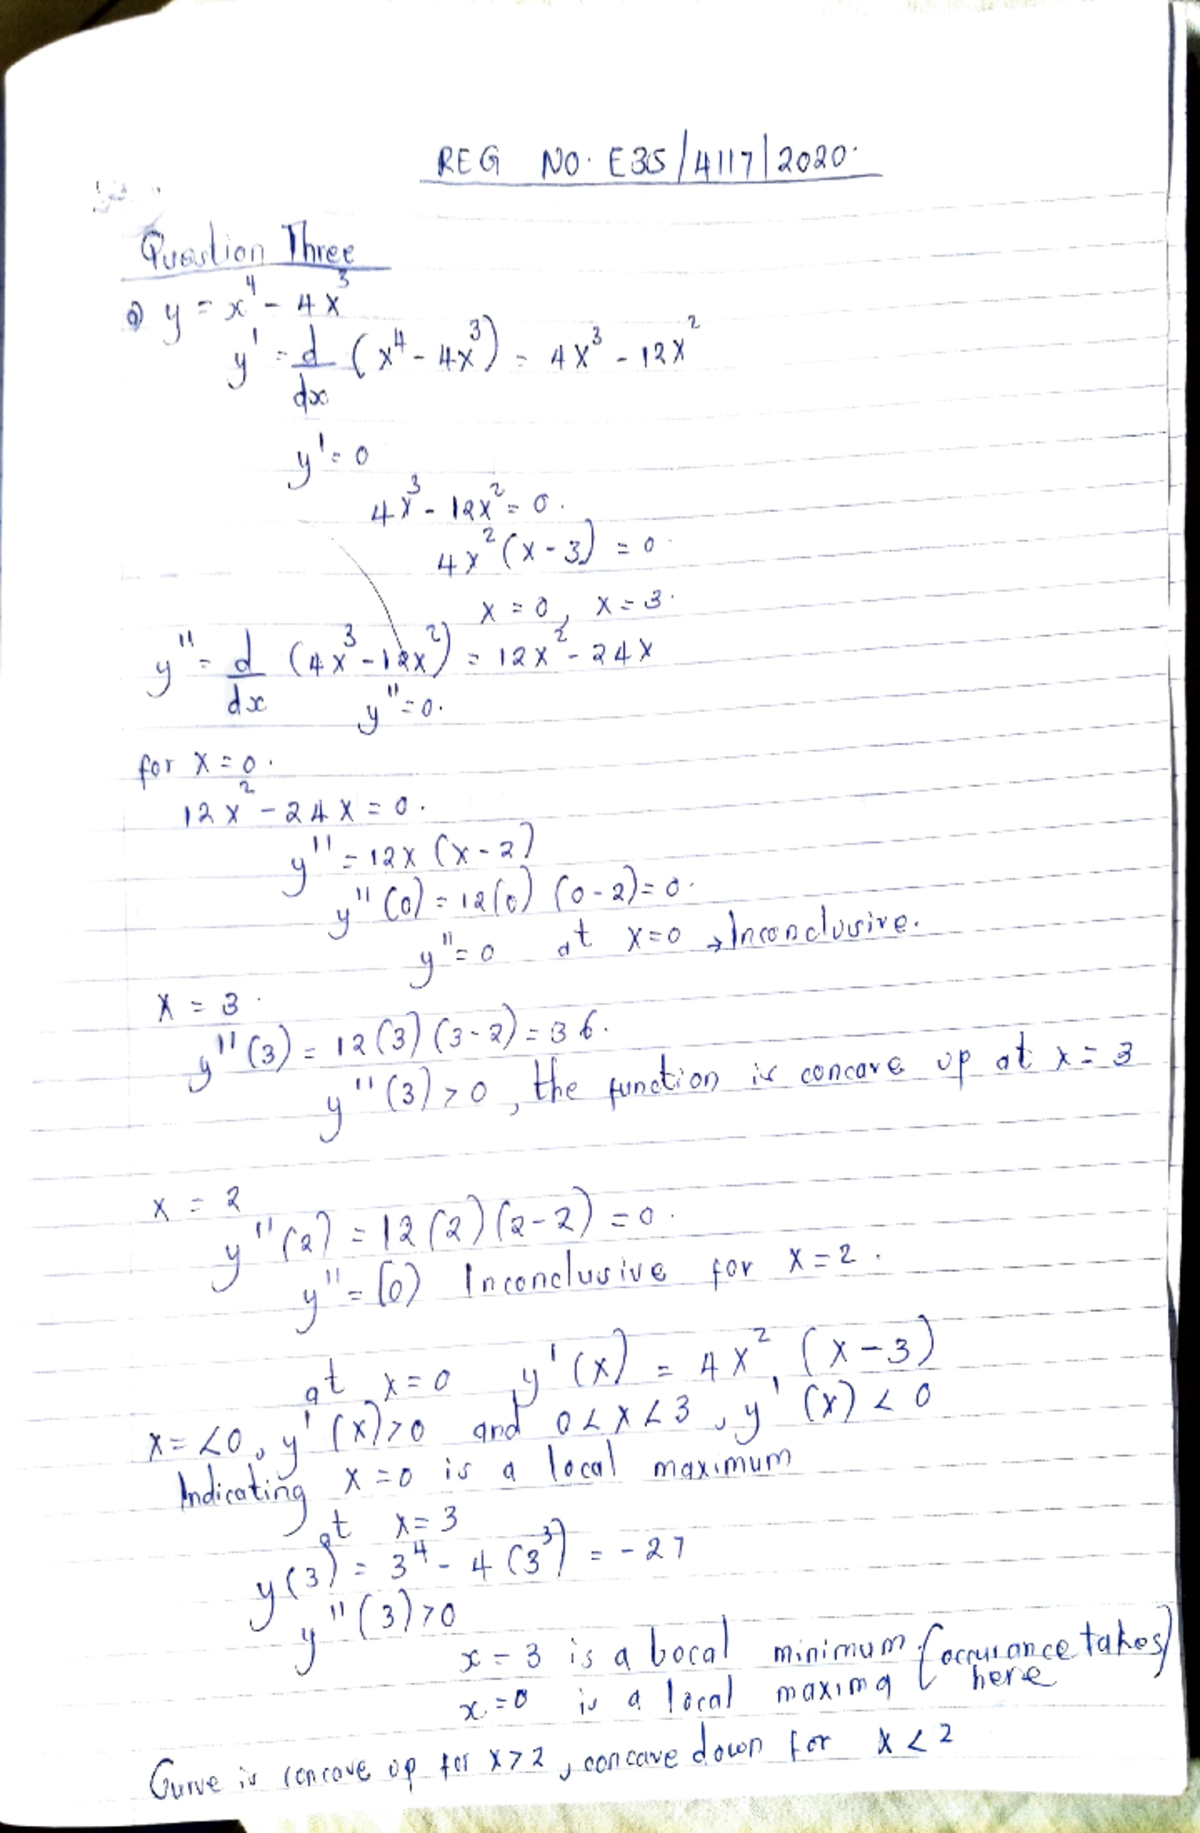 REG NO. E35/4117/2020.
Question Three
a) y = x⁴ - 4x³
y' = d/dx (x⁴ - 4x³) = 4x³ - 12x²
y' = 0
4x³ - 12x² = 0.
4x² (x - 3) = 0.
x = 0, x = 3.
y'' = d/dx (4x³ - 12x²) = 12x² - 24x
y'' = 0.
for x = 0.
12x² - 24x = 0.
y'' = 12x (x - 2)
y'' (0) = 12(0) (0 - 2) = 0.
y'' = 0 at x=0 → Inconclusive.
x = 3.
y'' (3) = 12(3) (3 - 2) = 36.
y'' (3) > 0, the function is concave up at x = 3
x = 2
y'' (2) = 12 (2) (2 - 2) = 0.
y'' = (0) Inconclusive for x = 2.
at x = 0 y' (x) = 4x² (x - 3)
x = <0, y' (x) > 0 and 0 < x < 3, y' (x) < 0
Indicating x = 0 is a local maximum
at x = 3
y(3) = 3⁴ - 4 (3³) = -27
y'' (3) > 0
x = 3 is a bocal minimum. (occurance takes here)
x = 0 is a local maxima
Curve is concave up for x > 2, concave down for x < 2